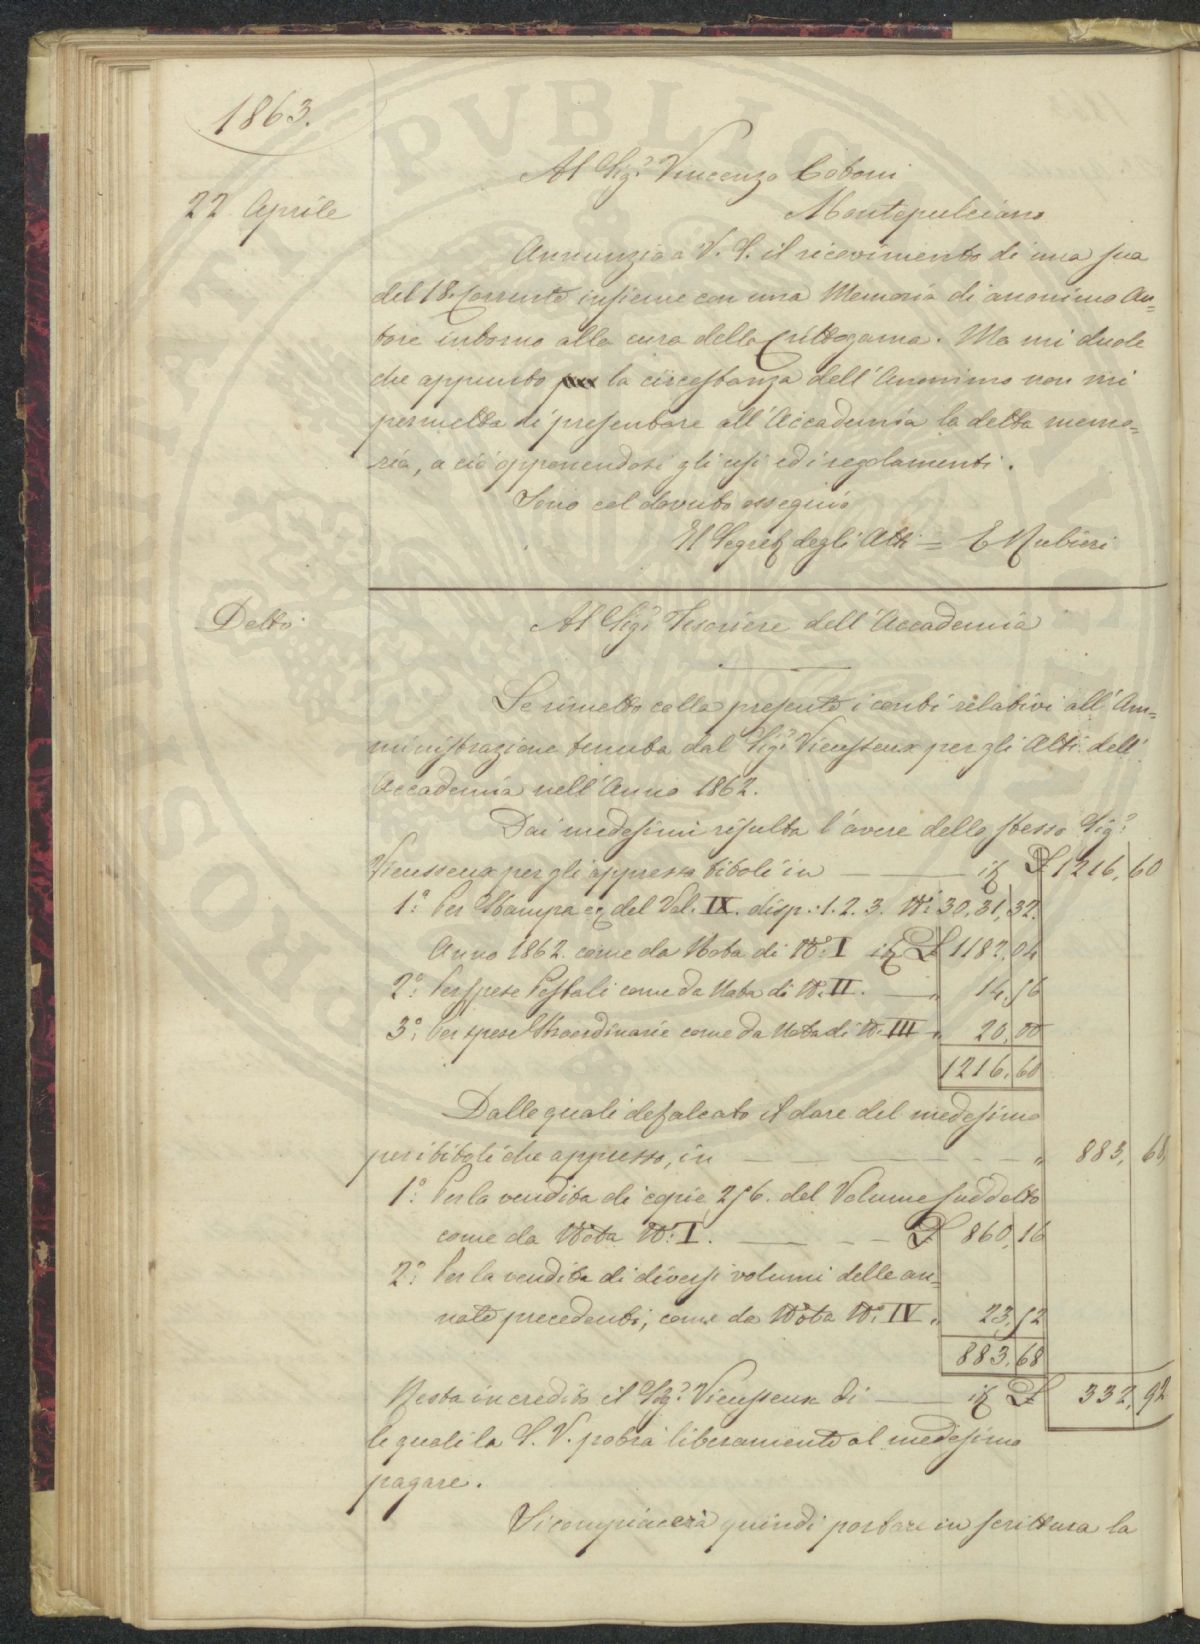 1863.
22 Aprile
Al Sig.r Vincenzo Coboni
Montepulciano
Annunzio a V. S. il ricevimento di una sua
del 18. corrente insieme con una Memoria di anonimo Au=
tore intorno alla cura della Crittogama. Ma mi duole
che appunto la circostanza dell'Anonimo non mi
permetta di presentare all'Accademia la detta memo=
ria, a ciò opponendosi gli usi ed i regolamenti.
Sono col dovuto ossequio
Il Segret degli Atti = E Rubieri
Detto
Al Sig.r Tesoriere dell'Accademia
Le rimetto colla presente i conti relativi all'Am=
ministrazione tenuta dal Sig.r Vieusseux per gli Atti dell'
Accademia nell'Anno 1862.
Dai medesimi risulta l'avere dello stesso Sig.r
Vieusseux per gli appressi titoli in — it £ 1216,60
1.° Per Stampa ec del Vol. IX. disp: 1. 2. 3. N.i 30, 31, 32.
Anno 1862. come da Nota di N.° I it £ 1182,04
2.° Per spese Postali come da Nota di N. II. — " 14,56
3.° Per spese Straordinarie come da Nota di N. III " 20,00
1216,60
Dalle quali defalcato il dare del medesimo
per i titoli che appresso, in — " 883, 68,
1.° Per la vendita di copie 256. del Volume suddetto
come da Nota N.° I. — £ 860,16
2.° Per la vendita di diversi volumi delle an=
nate precedenti, come da Nota N.° IV " 23,52
883,68
Resta in credito il Sig.r Vieusseux di — it £ 332,92
le quali la S. V. potrà liberamente al medesimo
pagare.
Si compiacerà quindi portare in scrittura la